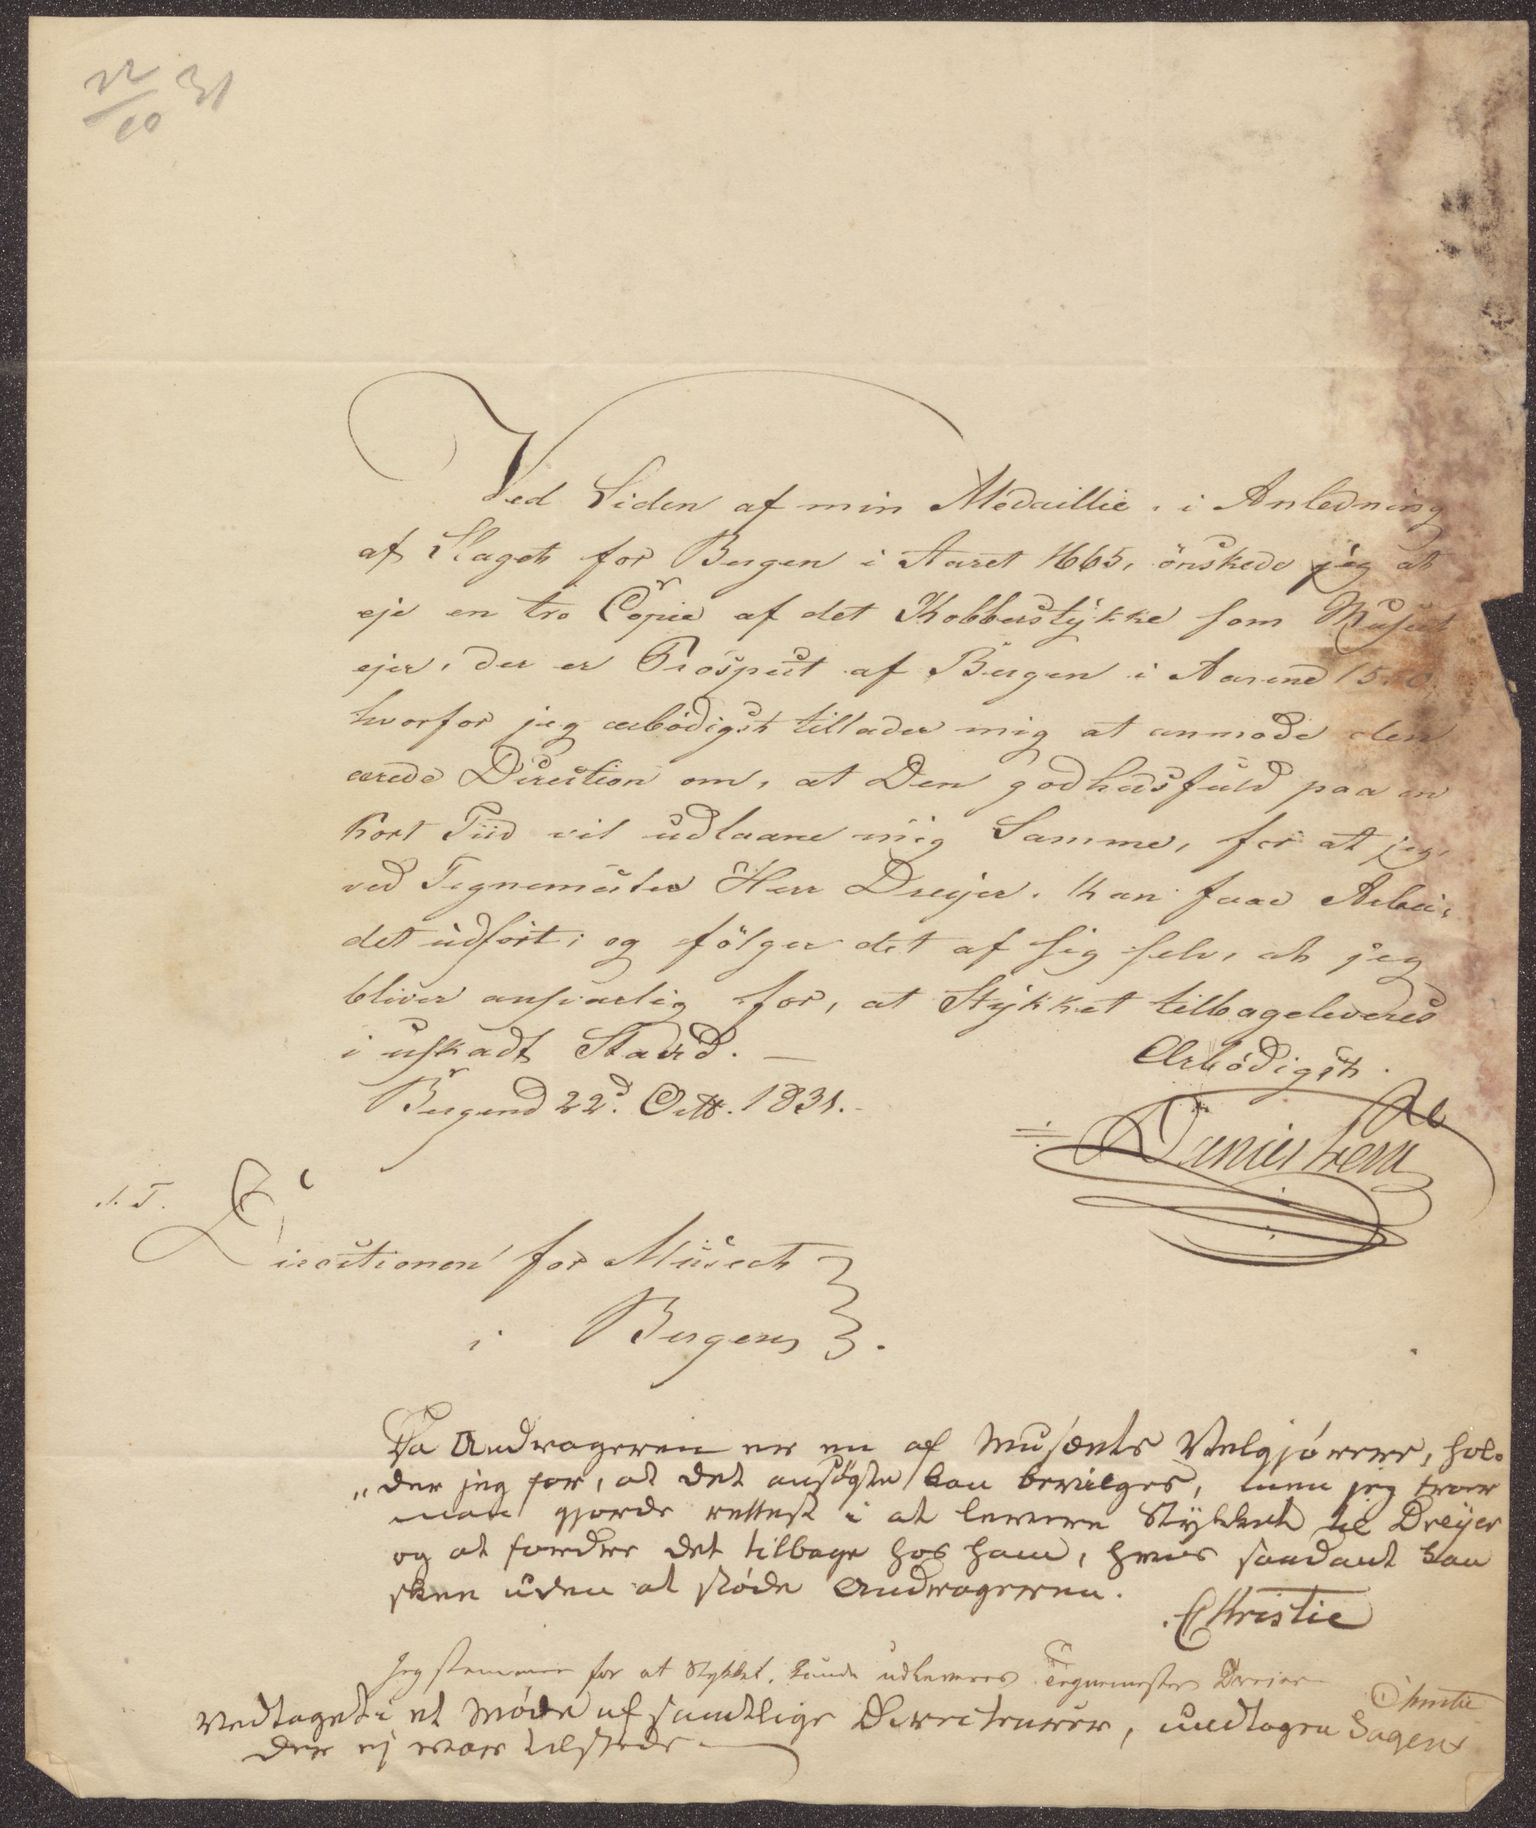 22/10 31
Ved Siden af min Medaillie, i Anledning
af Slaget for Bergen i Aaret 1665, önskede jeg at
eje en tro Copie af det Kobberstykke som Museet
ejer, der er Prospect af Bergen i Aarene 15
hvorfor jeg ærbödigst tillader mig at anmode den
ærede Direction om, at Den godhedsfuld paa en
kort Tiid vil udlaane mig Samme, for at jeg,
ved Tegnemester Herr Dreyer, kan faae Arbei,
det udfört; og fölger det af sig selv, at jeg
bliver ansvarlig for, at Stykket tilbageleveres
i uskadt Stand. —
Ærbödigst.
Bergen d 22d. Octb. 1831.
Daniel Krohn
S. T.
Directionen for Museet
i Bergen.
Da Andrageren er en af Musæets Velgjörere, hol-
"der jeg for, at det ansögte kan bevilges, men jeg troer
man gjorde rettest i at levere Stykket til Dreyer
og at fordre det tilbage hos ham, hvis saadant kan
skee uden at stöde Andrageren.
Christie
Jeg stemmer for at Stykket, kunde udleveres Tegnemester Dreier
Christie
Vedtaget i et Möde af samtlige Directeurer, undtagen Sagen
der ej var tilstede —